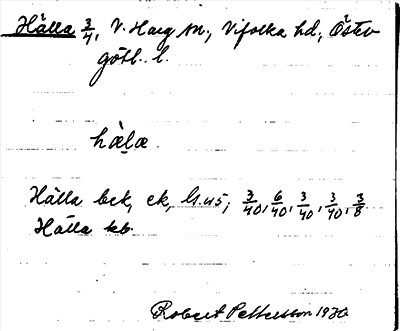 Hälla 3/4, V. Harg sn., Vifolka hd, Öster
götl. l.
hälæ.
Hälla bck, ek, 3/40, 6/40, 3/40, 3/40, 3/8
Hälla kb.
Robert Pettersson 1930